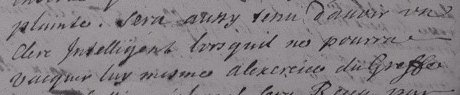 plainte. Sera aussy tenu d'avoir un
Clerc Intelligent lorsquil ne pourra
vacquer luy mesme alexercice du Greffe